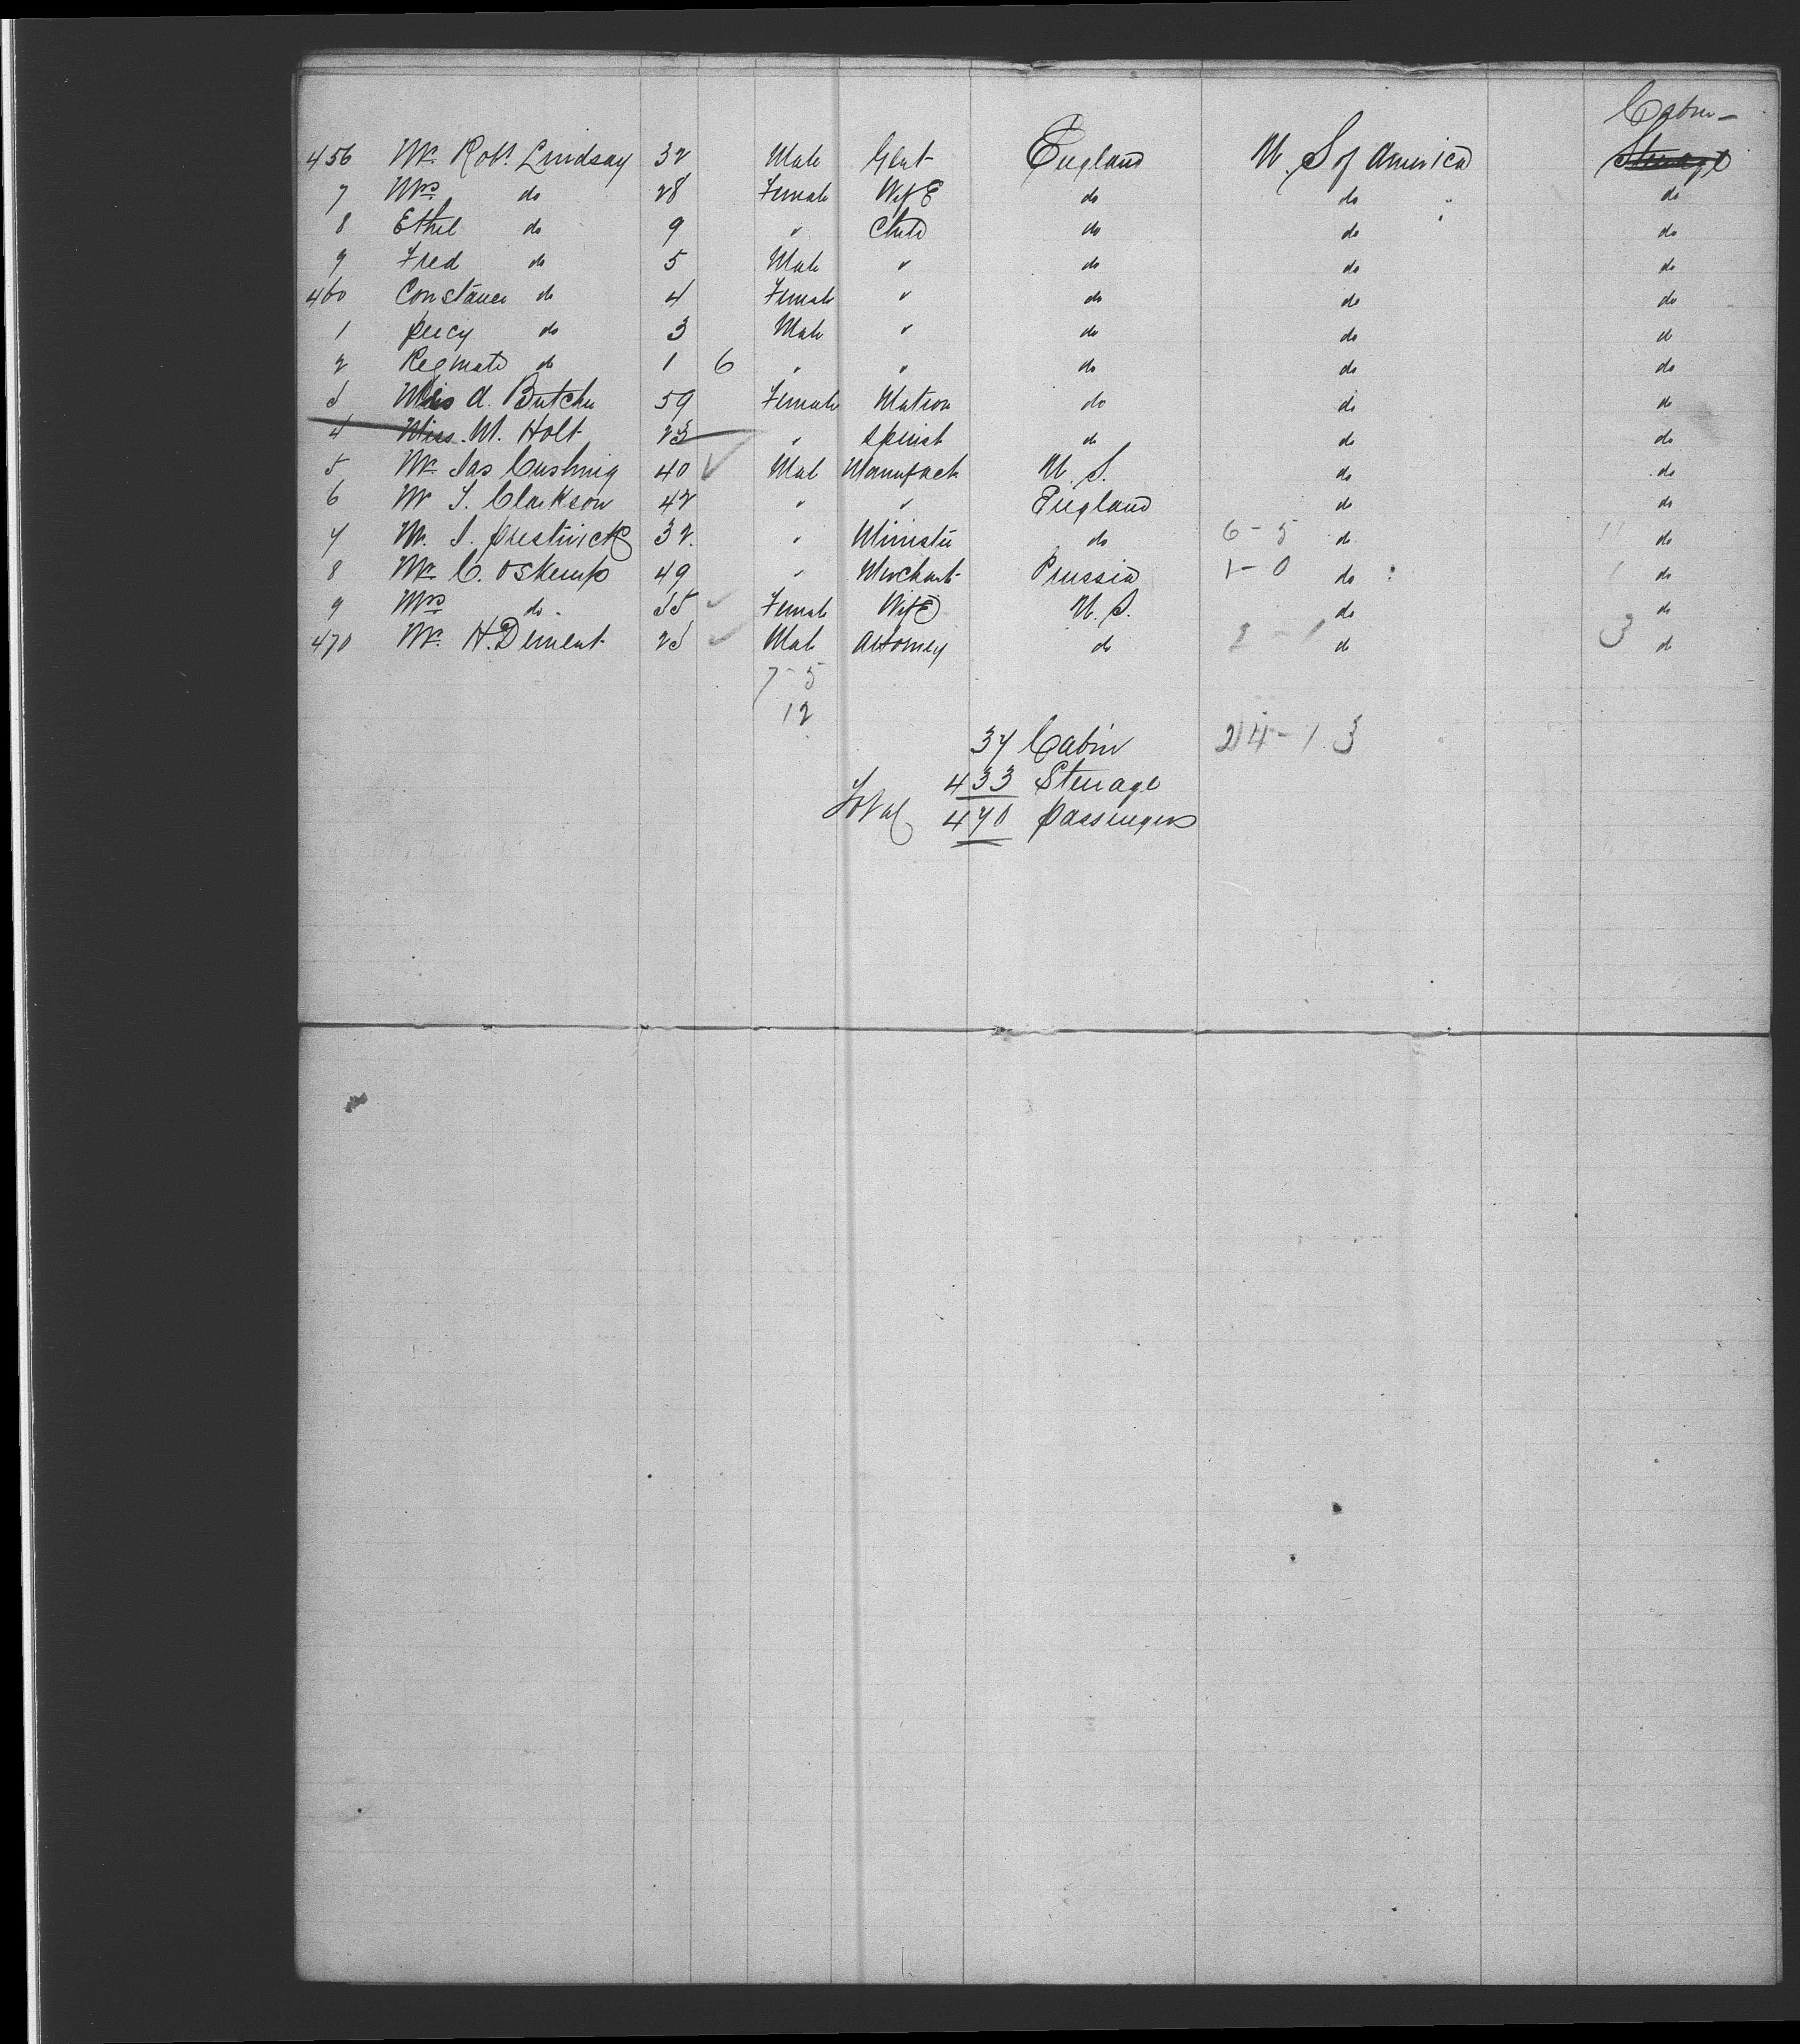 Cabin -
456 Mr. Robt. Lindsay 32 Male Glat England U. S of America Steerage
7 Mrs do 28 Female Wife do do do
8 Ethel do 9 " Child do do do
9 Fred do 5 Male " do do do
460 Constance do 4 Female " do do do
1 Percy do 3 Male " do do do
2 Reginald do 1 6 " " do do do
3 A. Butcher 59 Female Matron do do do
4 Miss. M. Holt 23 " Spinst do do do
5 Mr Jas Cushing 40 Male Manufact U. S. do do
6 Mr Clarkson 42 " " England do do
7 Mr. Prestwick 32. " Minister do 6-5 do 11 do
8 Mr C. Oskamp 49 " Merchant Prussia 1-0 do 1 do
9 Mrs do 35 Female Wife U. S. do do
470 Mr. H. Dement 23 Male Attorney do 2-1 do 3 do
7-5
12
37 Cabin 24-13
433 Steerage
Total 470 passengers